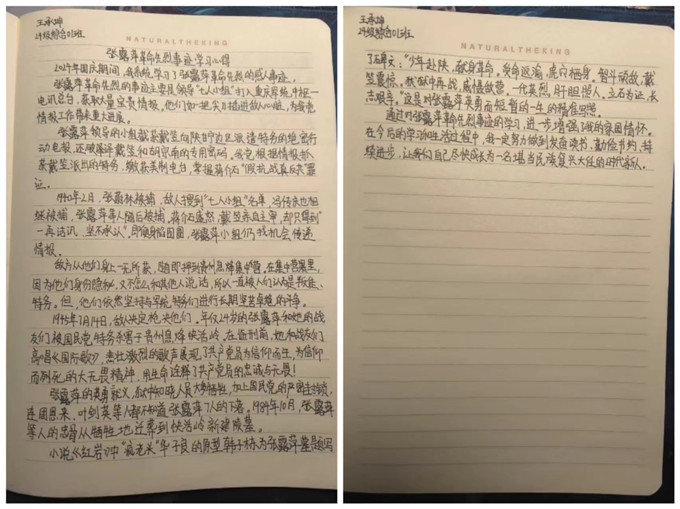 王承坤
24级综合01班
NATURALTHEKING
张露萍革命先烈事迹学习心得
2024年国庆期间,我系统学习了张露萍革命先烈的感人事迹。
张露萍革命先烈的事迹主要是领导“七人小组”打入重庆军统并控一
电讯总台,获取大量宝贵情报,他们如一把尖刀插进敌人心脏,为我党
情报工作带来重大进展。
张露萍领导的小组截获戴笠向陕甘边区派遣特务的绝密行
动电报,还破译戴笠和胡宗南的专用密码。我党根据情报抓
获戴笠派出的特务,缴获美制电台,掌握蒋介石“假抗战真反共”罪
证。
1940年2月,张蔚林被捕,敌人搜到“七人小组”名单,冯传庆也相
继被捕,张露萍等人随后被捕。蒋介石震怒,戴笠亲自主审,却只得到“
一再讯,坚不承认”。即使身陷囹圄,张露萍小组仍找机会传递
情报。
敌方从他们身上一无所获,随即押到贵州息烽集中营。在集中营里,
因为他们身份隐秘,又不能和其他人说话,所以一直被人们认为是叛徒、
特务。但,他们依然坚持与军统特务们进行长期坚苦卓绝的斗争。
1945年7月14日,敌人决定枪决他们。年仅24岁的张露萍和她的战
友们被国民党特务杀害于贵州息烽快活岭。在临刑前,她和战友们
高唱《国际歌》,悲壮激烈的歌声展现了共产党员为信仰而生,为信仰
而死的大无畏精神,用生命诠释了共产党员的忠诚与无畏!
张露萍的英勇就义,狱中知晓人员大多牺牲,加上国民党的严密封锁,
连周恩来、叶剑英等人都不知道张露萍7人的下落。1984年10月,张露萍
等人的忠骨从牺牲地迁葬到快活岭新建陵墓。
小说《红岩》中“疯老头”华子良的原型韩子栋为张露萍墓题写
王承坤
24级综合01班
NATURALTHEKING
了碑文:“少年赴陕,献身革命。受命返渝,虎穴栖身,智斗顽敌,戴
笠震惊。狱中再战,威慑敌营。一代英烈,肝胆照人。立石为证,长
志艰辛。”这是对张露萍英勇而短暂的一生的精准回答。
通过对张露萍革命先烈事迹的学习,进一步增强了我的家国情怀。
在今后的学习和生活过程中,我一定努力做到发奋读书、勤俭节约,持
续进步,让我们自己尽快成长为一名堪当民族复兴大任的时代新人。